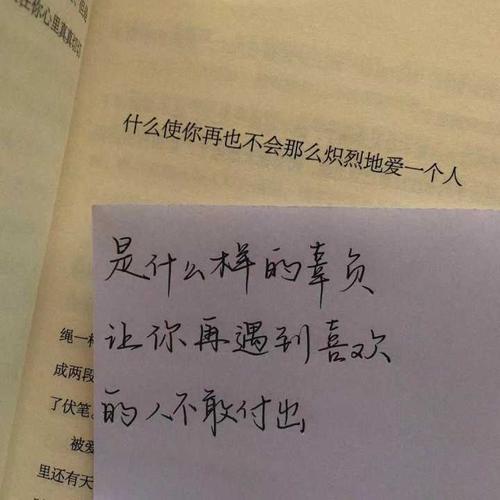 在你心里真真切切
什么使你再也不会那么炽烈地爱一个人
是什么样的辜负
让你再遇到喜欢
的人不敢付出
绳一样
成两段
了伏笔。
被爱
里还有天